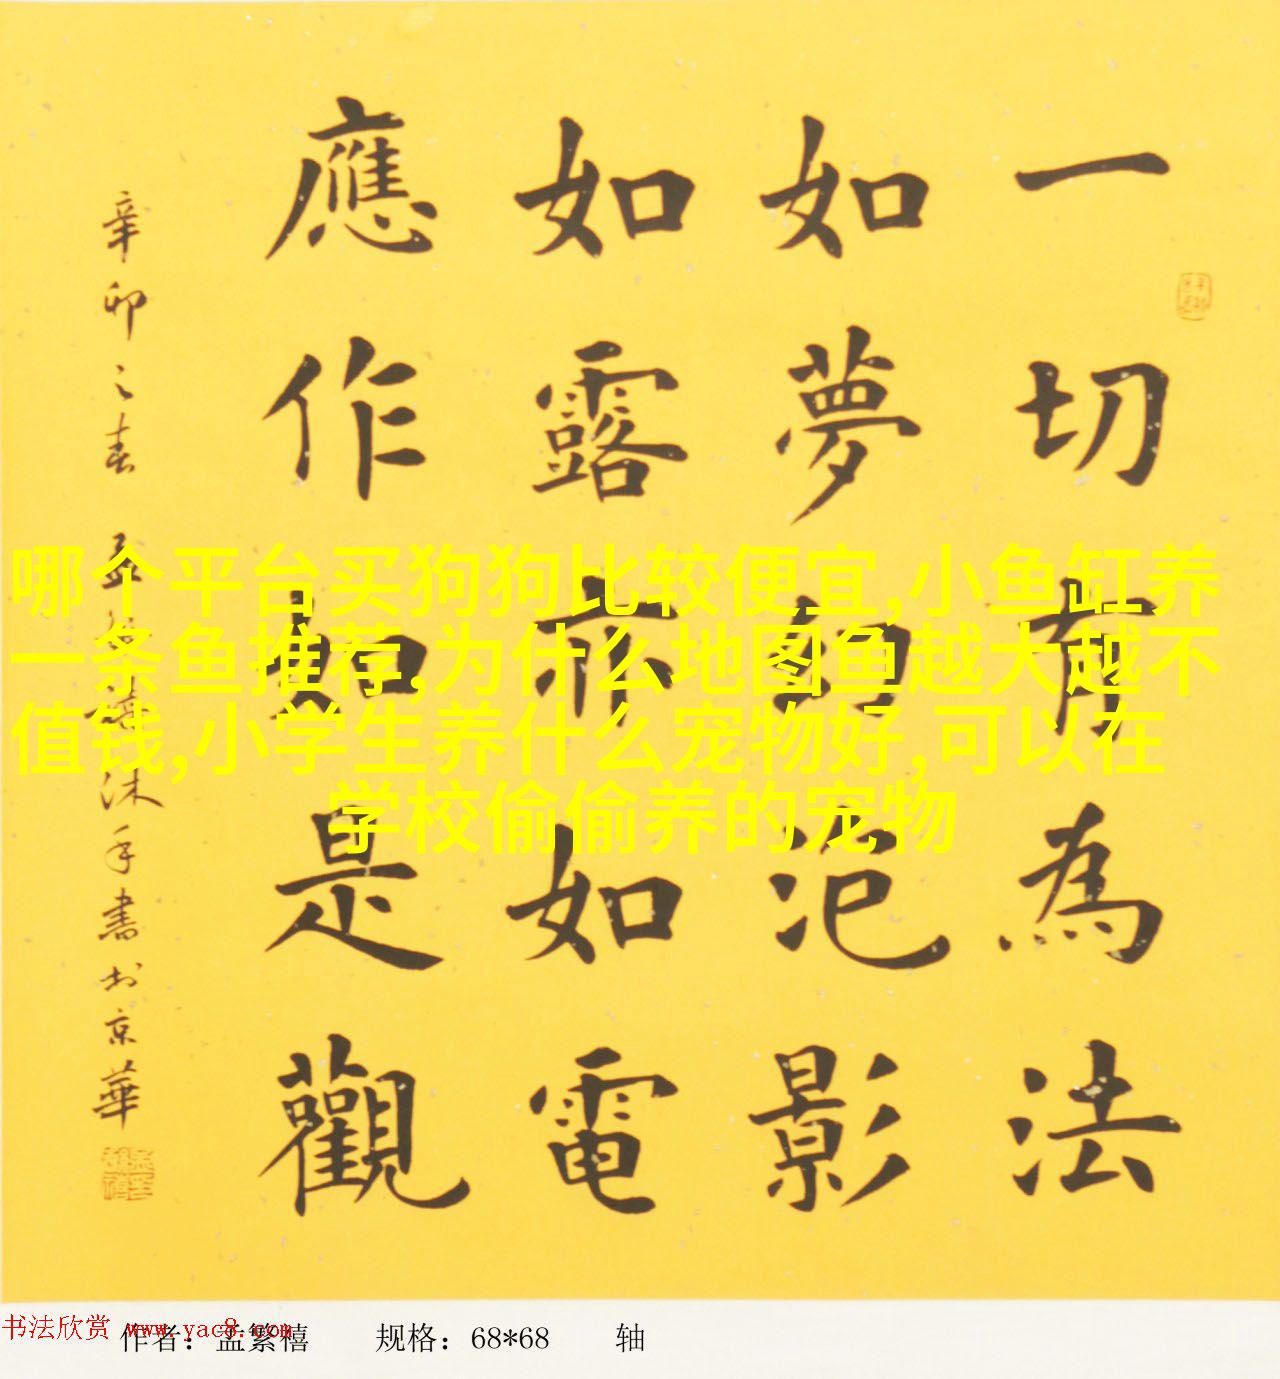 一切有為法
如夢幻泡影
如露亦如電
應作如是觀
辛卯之春 孟繁禧沐手書於京華
哪个平台买狗狗比较便宜,小鱼缸养
一条鱼推荐,为什么地图鱼越大越不
值钱,小学生养什么宠物好,可以在
学校偷偷养的宠物
书法欣赏 www.yac8.com
作者：孟繁禧 规格：68*68 轴